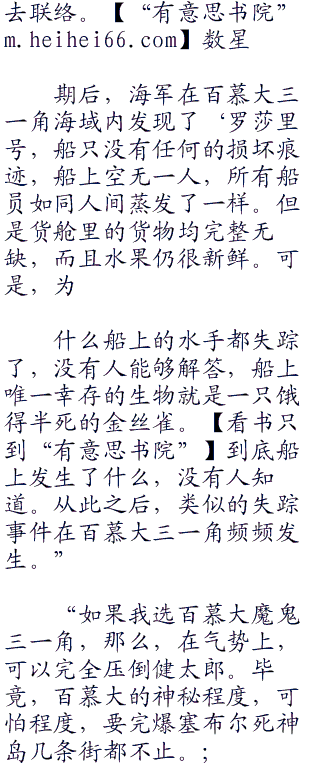 去联络。【“有意思书院”
m.heihei66.com】数星
期后，海军在百慕大三
一角海域内发现了‘罗莎里
号，船只没有任何的损坏痕
迹，船上空无一人，所有船
员如同人间蒸发了一样。但
是货舱里的货物均完整无
缺，而且水果仍很新鲜。可
是，为
什么船上的水手都失踪
了，没有人能够解答，船上
唯一幸存的生物就是一只饿
得半死的金丝雀。【看书只
到“有意思书院”】到底船
上发生了什么，没有人知
道。从此之后，类似的失踪
事件在百慕大三一角频频发
生。”
“如果我选百慕大魔鬼
三一角，那么，在气势上，
可以完全压倒健太郎。毕
竟，百慕大的神秘程度，可
怕程度，要完爆塞布尔死神
岛几条街都不止。;